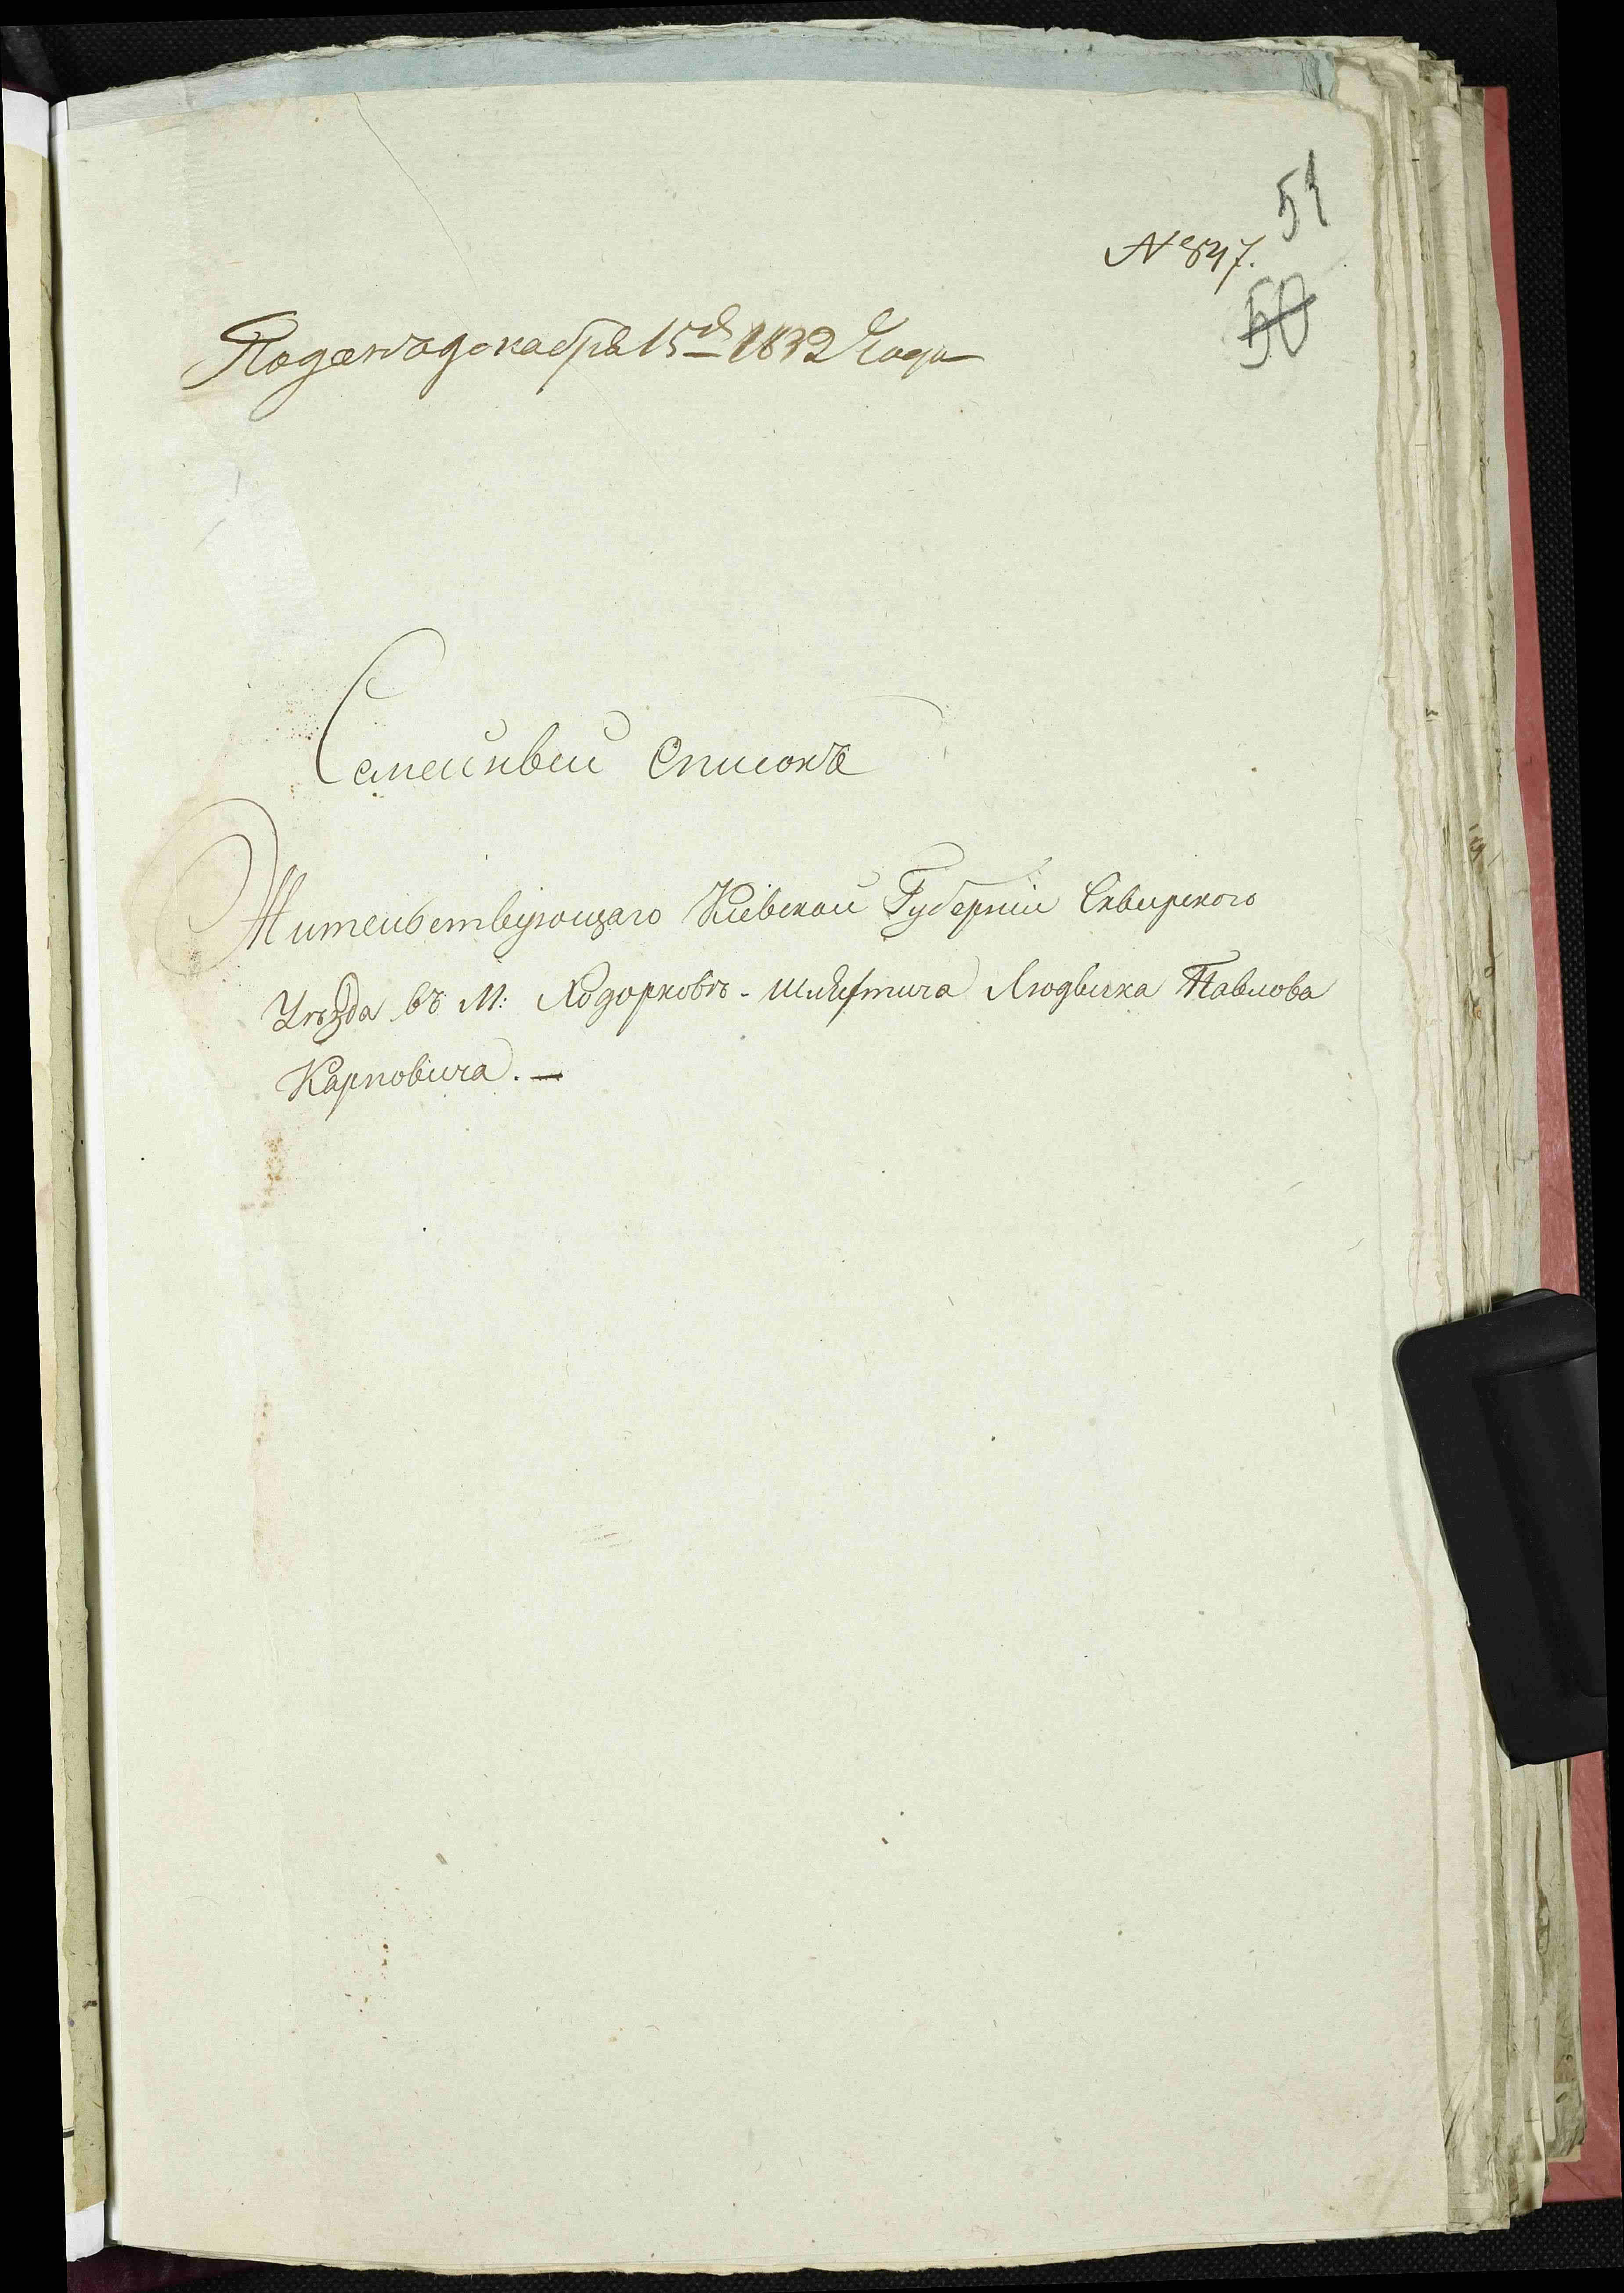 51
№ 847.
50
Поданъ декабря 15го 1832 Года
Семейный Списокъ
Жительствующаго Кіевской Губерніи Сквирского
Уѣзда въ М: Ходорковѣ - шляхтича Людвика Павлова
Карповича. —